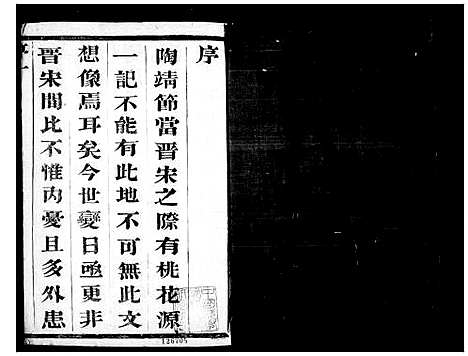 序
陶靖節當晉宋之際有桃花源
一記不能有此地不可無此文
想像焉耳矣今世變日亟更非
晉宋間比不惟內憂且多外患
126705